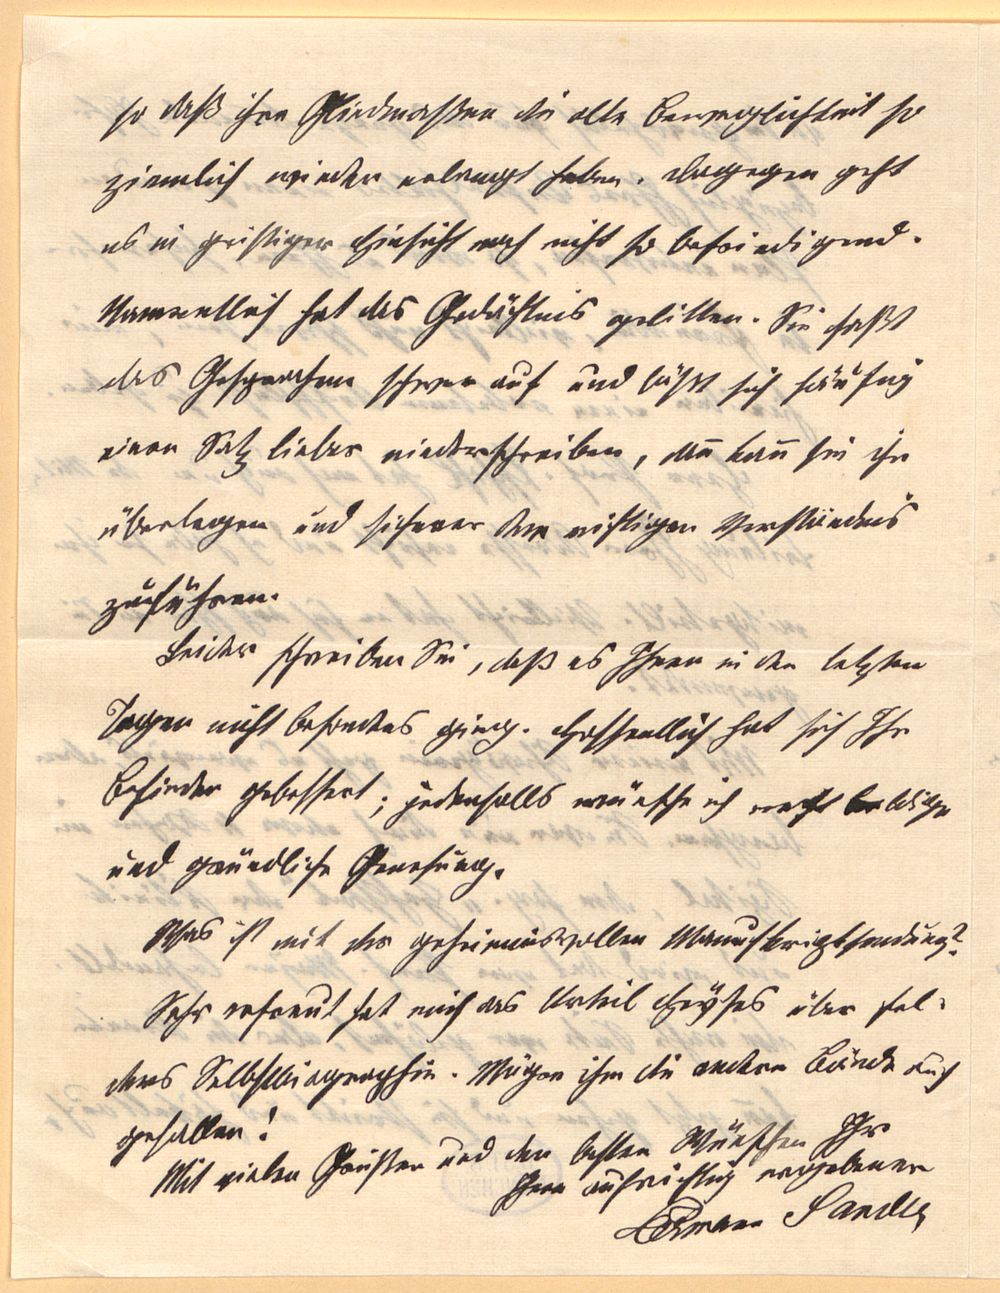 so daß ihre Gliedmaßen die alte Beweglichkeit so
ziemlich wieder erlangt haben. Dagegen geht
es in geistiger Hinsicht noch nicht so befriedigend.
Namentlich hat das Gedächtnis gelitten. Sie faßt
das Gesprochene schwer auf und läßt sich häufig
einen Satz lieber niederschreiben, dann kann sie ihn
überlegen und sicherer dem richtigen Verständnis
zuführen.
Leider schreiben Sie, daß es Ihnen in den letzten
Tagen nicht besonders ging. Hoffentlich hat sich Ihr
Befinden gebessert; jedenfalls wünsche ich recht baldige
und gründliche Genesung.
Was ist mit der geheimnisvollen Manuskriptsendung?
Sehr erfreut hat mich das Urteil Heyses über Fel-
ders Selbstbiographie. Mögen ihm die andern Bände auch
gefallen!
Mit vielen Grüßen und den besten Wünschen Ihr
Ihnen aufrichtig ergebener
Hermann Sander